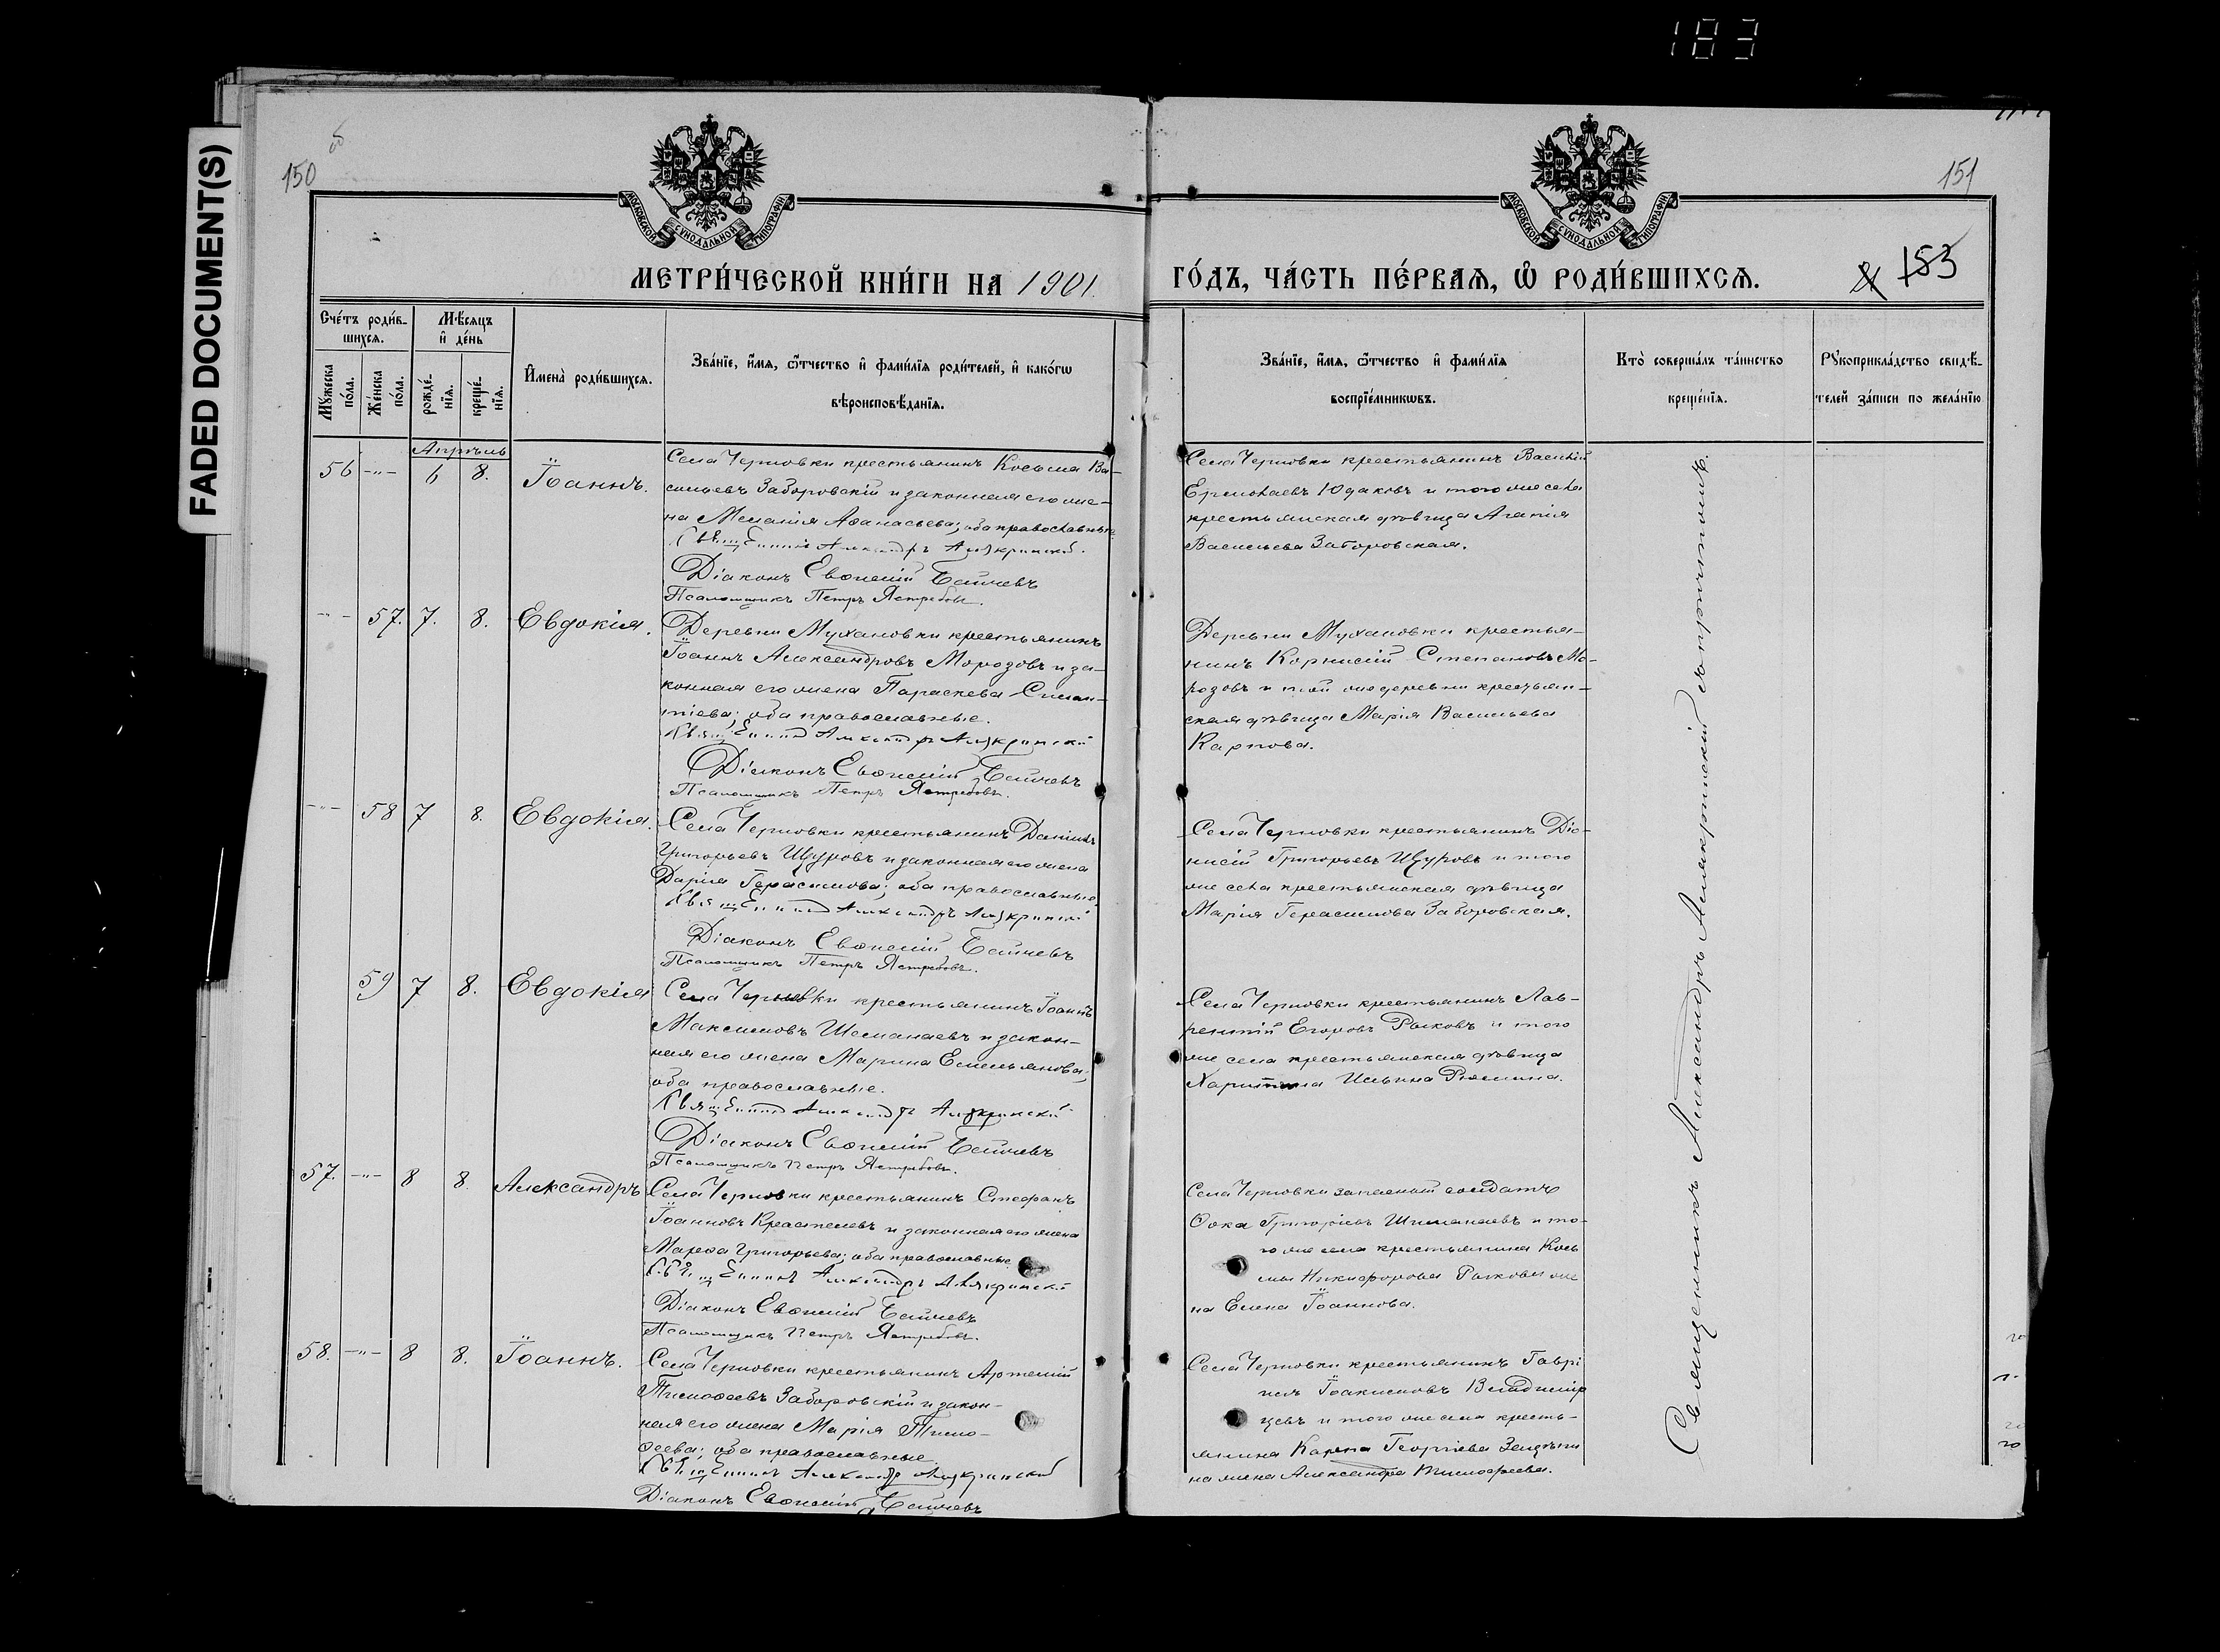 183
FADED DOCUMENT(S)
150
об
151
МОСКОВСКОЙ СУНОДАЛЬНОЙ ТИПОГРАФІИ
МОСКОВСКОЙ СУНОДАЛЬНОЙ ТИПОГРАФІИ
МЕТРИ́ЧЕСКОЙ КНИ́ГИ НА 1901
ГО́ДЪ, ЧА́СТЬ ПЕ́РВАЯ, Ѡ҆ РОДИ́ВШИХСЯ.
153
Сче́тъ роди́в-
шихся.
Мѣ́сяцъ
и҆ де́нь
Мꙋ́жеска по́ла.
Же́нска по́ла.
рожде́-нїя.
креще́-нїя.
И҆мена̀ роди́вшихся.
Зва́нїе, и҆́мя, ѻ҆́тчество и҆ фами́лїя роди́телей, и҆ како́гѡ
вѣроисповѣ́данїя.
Зва́нїе, и҆́мя, ѻ҆́тчество и҆ фами́лїя
воспрїе́мникѡвъ.
Кто̀ соверша́лъ та́инство
креще́нїя.
Рꙋкоприкла́дство свидѣ́-
телей за́писи по жела́нїю
Апрѣль
56 -"- 6 8. Іоаннъ.
Села Черновки крестьянинъ Косьма Ва-
сильевъ Заборовскій и законная его же-
на Меланія Аѳанасьева; оба православные
Священникъ Александръ Алякринскій.
Діаконъ Евѳимій
Псаломщикъ Петръ Ястребовъ.
Села Черновки крестьянинъ Василій
Ермолаевъ Юдаковъ и того же села
крестьянская дѣвица Агапія
Васильева Заборовская.
-"- 57. 7. 8. Евдокія.
Деревни Мухановки крестьянинъ
Іоаннъ Александровъ Морозовъ и за-
конная его жена Параскева Силан-
тіева; оба православные.
Священникъ Александръ Алякринскій
Діаконъ Евѳимій
Псаломщикъ Петръ Ястребовъ.
Деревни Мухановки крестья-
нинъ Корнилій Степановъ Мо-
розовъ и той же деревни крестьян-
ская дѣвица Марія Васильева
Карпова.
-"- 58 7 8. Евдокія.
Села Черновки крестьянинъ Даніилъ
Григорьевъ Щуровъ и законная его жена
Дарія Герасимова; оба православные.
Священникъ Александръ Алякринскій
Діаконъ Евѳимій
Псаломщикъ Петръ Ястребовъ.
Села Черновки крестьянинъ Діо-
нисій Григорьевъ Щуровъ и того
же села крестьянская дѣвица
Марія Герасимова Заборовская.
59 7 8. Евдокія
Села Черновки крестьянинъ Іоаннъ
Максимовъ Шеманаевъ и закон-
ная его жена Марина Емельянова;
оба православные.
Священникъ Александръ Алякринскій
Діаконъ Евѳимій
Псаломщикъ Петръ Ястребовъ.
Села Черновки крестьянинъ Лав-
рентій Егоровъ Рыковъ и того
же села крестьянская дѣвица
Харитина Ильина
57. -"- 8 8 Александръ
Села Черновки крестьянинъ Стефанъ
Іоанновъ и законная его жена
Марѳа Григорьева; оба православные
Священникъ Александръ Алякринскій
Діаконъ Евѳимій
Псаломщикъ Петръ Ястребовъ.
Села Черновки запасный солдатъ
Ѳока Григоріевъ Шиманаевъ и то-
го же села крестьянина Кось
мы Никифорова Рыкова же
на Елена Іоаннова.
58. -"- 8 8. Іоаннъ.
Села Черновки крестьянинъ Артемій
Тимоѳеевъ Заборовскій и закон-
ная его жена Марія Тимо-
ѳеева; оба православные.
Священникъ Александръ Алякринскій
Діаконъ Евѳимій
Села Черновки крестьянинъ Гаврі
илъ Іоакимовъ Владимір
цевъ и того же села кресть-
янина Карпа Георгіева
на жена Александра Тимофеева.
Священникъ Александръ Алякринскій съ причтомъ.